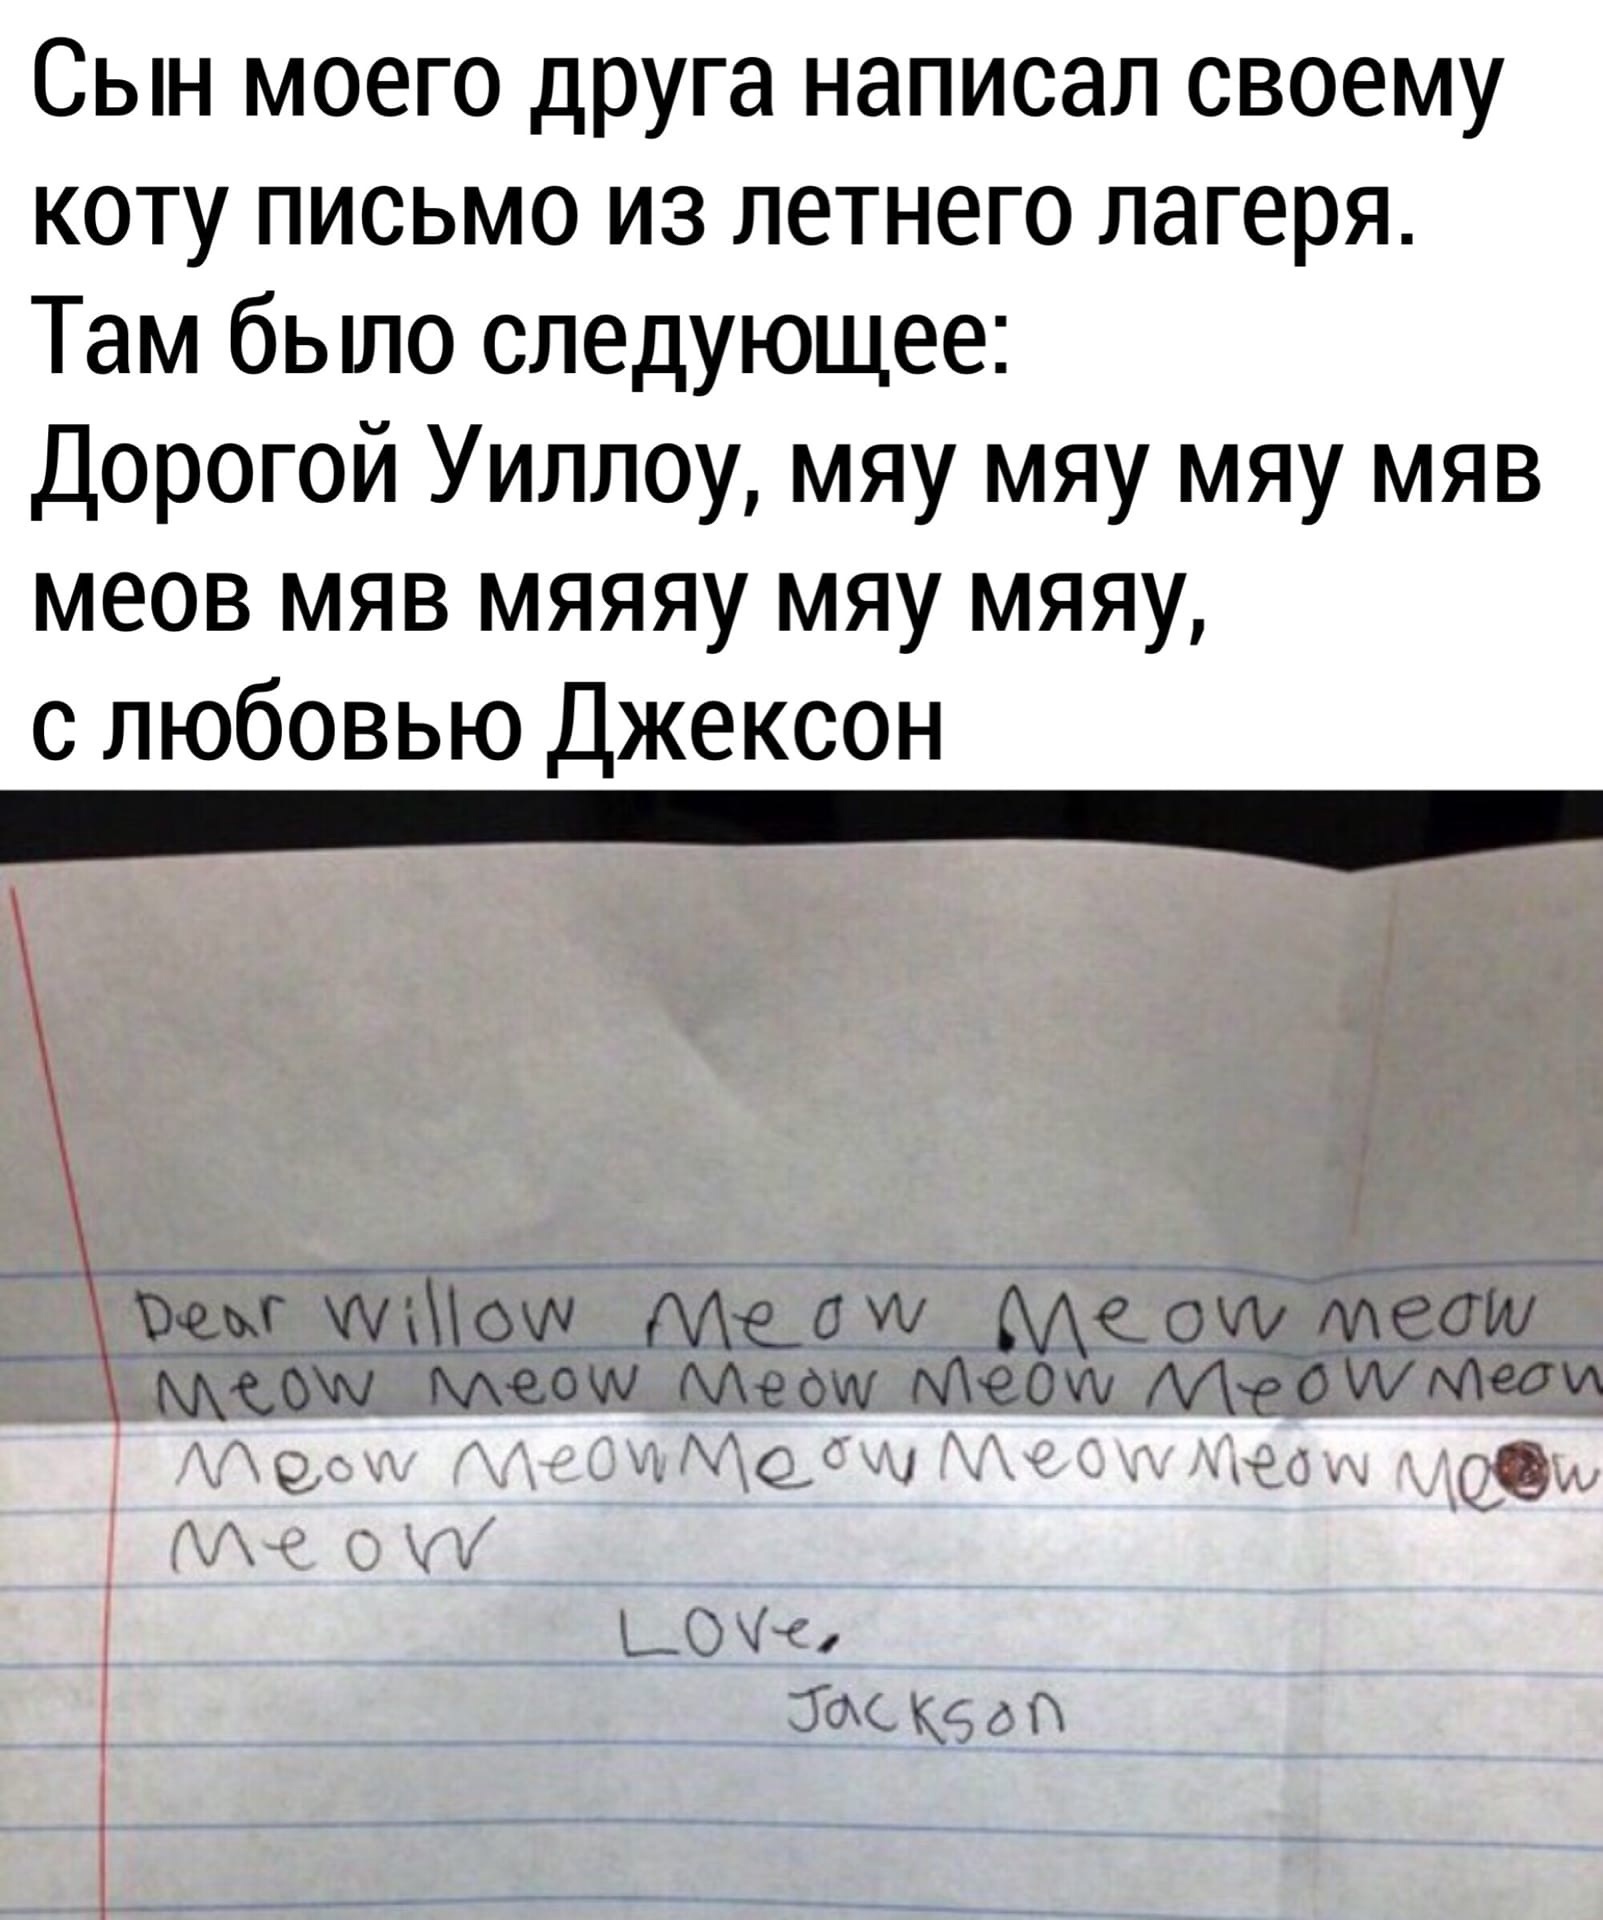 Сын моего друга написал своему
коту письмо из летнего лагеря.
Там было следующее:
Дорогой Уиллоу, мяу мяу мяу мяв
меов мяв мяяяу мяу мяяу,
с любовью Джексон
Dear Willow Meow Meow meow
Meow Meow Meow Meow Meow Meow
Meow Meow Meow Meow Meow Meow
Meow
Love,
Jackson